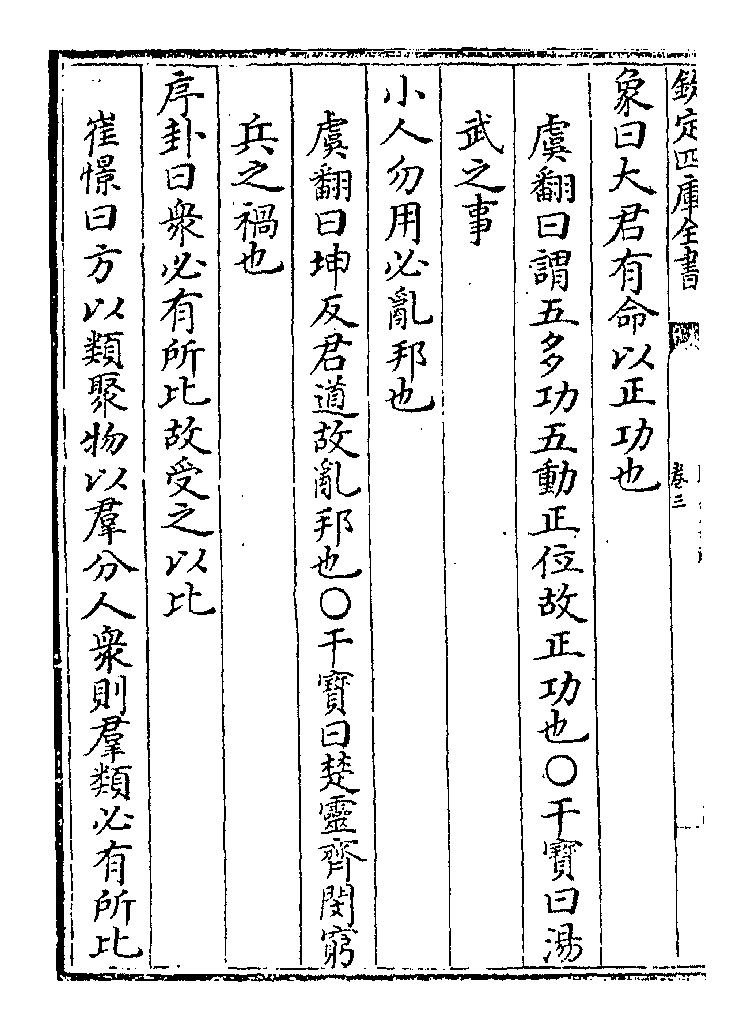 欽定四庫全書
卷三
象曰大君有命以正功也
虞翻曰謂五多功五動正位故正功也〇干寳曰湯
武之事
小人勿用必亂邦也
虞翻曰坤反君道故亂邦也〇干寳曰楚靈齊閔窮
兵之禍也
序卦曰衆必有所比故受之以比
崔憬曰方以類聚物以羣分人衆則羣類必有所比